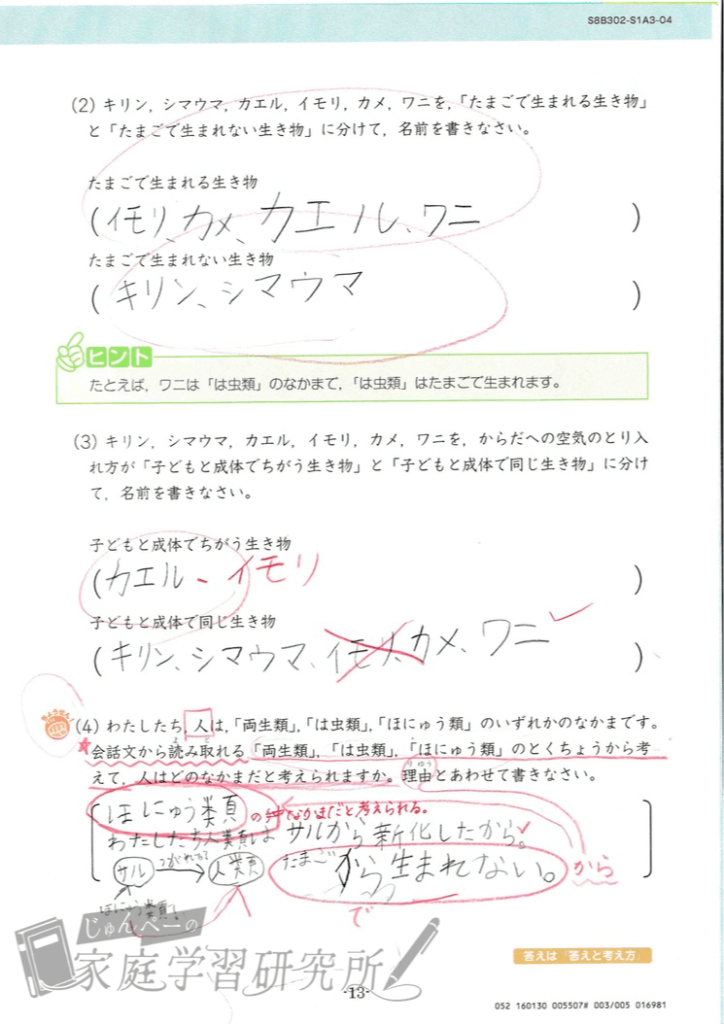 S8B302-S1A3-04
(2) キリン，シマウマ，カエル，イモリ，カメ，ワニを，「たまごで生まれる生き物」
と「たまごで生まれない生き物」に分けて，名前を書きなさい。
たまごで生まれる生き物
(イモリ、カメ、カエル、ワニ)
たまごで生まれない生き物
(キリン、シマウマ)
ヒント
たとえば，ワニは「は虫類」のなかまで，「は虫類」はたまごで生まれます。
(3) キリン，シマウマ，カエル，イモリ，カメ，ワニを，からだへの空気のとり入
れ方が「子どもと成体でちがう生き物」と「子どもと成体で同じ生き物」に分け
て，名前を書きなさい。
子どもと成体でちがう生き物
(カエル、イモリ)
子どもと成体で同じ生き物
(キリン、シマウマ、イモリ、カメ、ワニ)
ちょうせん!
(4) わたしたち人は，「両生類」，「は虫類」，「ほにゅう類」のいずれかのなかまです。
会話文から読み取れる「両生類」，「は虫類」，「ほにゅう類」のとくちょうから考
りゆう
えて，人はどのなかまだと考えられますか。理由とあわせて書きなさい。
ほにゅう類のなかまだと考えられる。
わたしたち人類はサルから新化したから。
サル 人類 たまごから生まれない。から
ほにゅう類
で
じゅんペーの
家庭学習研究所
答えは「答えと考え方」
-13-
052 160130 005507# 003/005 016981